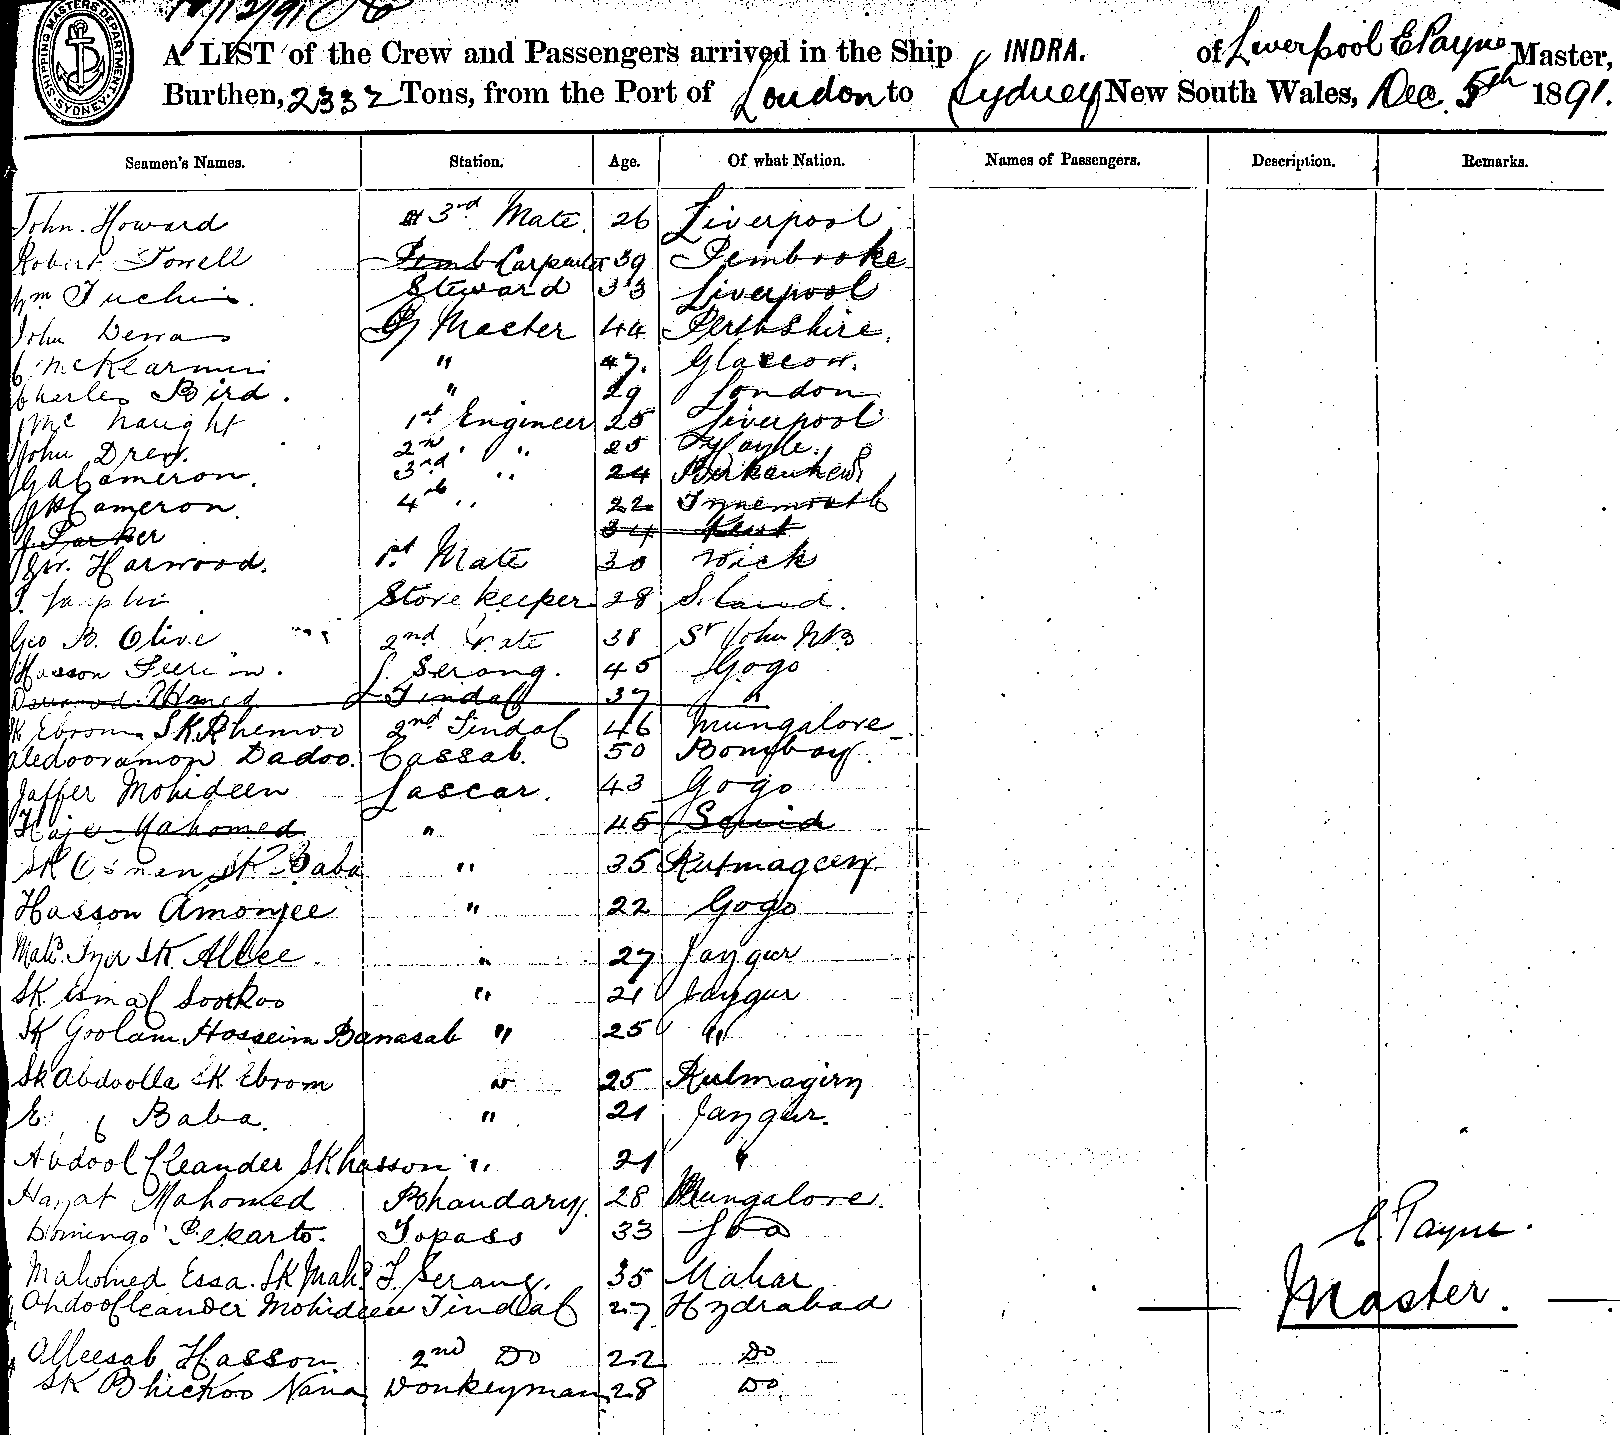 10/12/91
SHIPPING MASTERS DEPARTMENT SYDNEY
A LIST of the Crew and Passengers arrived in the Ship INDRA. of Liverpool E Payne Master,
Burthen, 2332 Tons, from the Port of London to Sydney New South Wales, Dec. 5th 1891.
Seamen's Names. Station. Age. Of what Nation. Names of Passengers. Description. Remarks.
John Howard 3rd Mate 26 Liverpool
Robert Towell Carpenter 39 Pembroke
Wm Steward 33 Liverpool
John Master 44 Perthshire.
" 47. Glascow.
Charles Bird. " 29 London
J Mc Naught 1st Engineer 25 Liverpool
John Drew. 2nd " " 25 Hayle.
G A Cameron. 3rd " 24 Birkenhead
Cameron. 4th " 22 Tynemouth
J Parker 34 Kent
Harwood. 1st Mate 30 Wick
Store keeper 28
Geo B. Olive 2nd Mate 38 St John NB
Hasson Serang. 45 Gogo
Ahmed Tindal 37 "
Sk Ebrom Sk Rhemoo 2nd Tindal 46 Mungalore
Dadoo. Cassab. 50 Bombay.
Jaffer Mohideen Lascar. 43 Gogo
Mahomed " 45
Sk Osman Sk Baba " 35 Rutmageery
Hasson Amonjee " 22 Gogo
Sk Allee. " 27 Jaygur
Sk Ismal Sookoo " 21 Jaygur
Sk Goolam Hossein Banasab " 25 "
Sk Abdoolla Sk Ebrom " 25 Rutmagiry
Baba. " 21 Jaygur.
Abdool Cleander Sk hasson " 21 "
Hayat Mahomed Bhandary. 28 Mungalore.
Domingo Pekarto. Topass 33 Goa
E. Payne.
Mahomed Essa. Sk Mahd F. Serang. 35 Mahar
Master.
Abdoolleander Mohideen Tindal 27 Hydrabad
Alleesab Hasson 2nd Do 22 Do
Sk Bhickoo Nana Donkeyman 28 Do